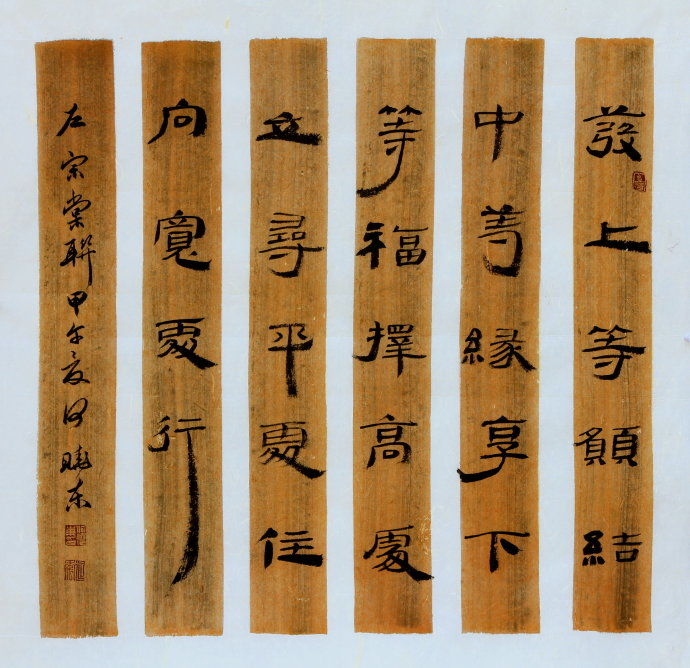 發上等願結
中等緣享下
等福擇高處
立尋平處住
向寬處行
左宗棠聯甲午夏何曉東